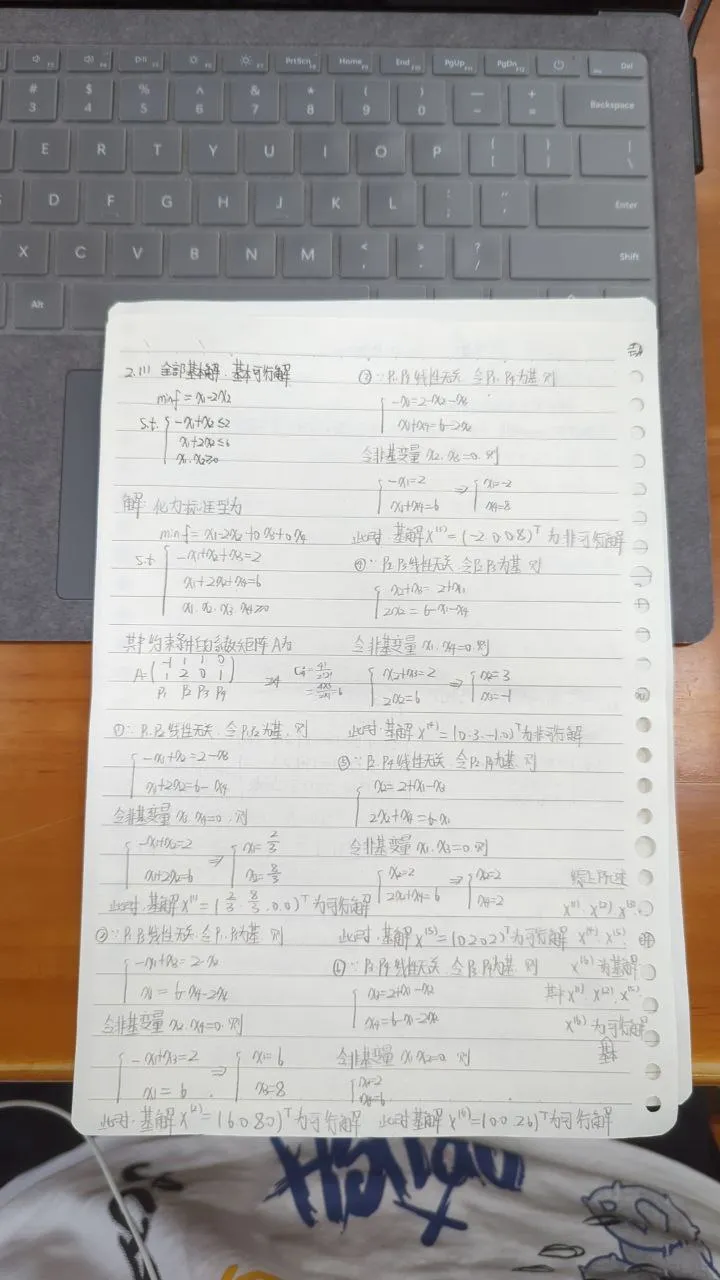 PrtScn Home End PgUp PgDn Del
# $ % ^ & * ( ) — +
3 4 5 6 7 8 9 0 - = Backspace
E R T Y U I O P { [ } ] | \
D F G H J K L : ; " ' Enter
X C V B N M < , > . ? / Shift
Alt
2.(1) 全部基本解.基本可行解
minf = x1-2x2
s.t. -x1+x2≤2
x1+2x2≤6
x1.x2≥0
解: 化为标准型为
minf = x1-2x2+0x3+0x4
s.t -x1+x2+x3=2
x1+2x2+x4=6
x1.x2.x3.x4≥0
其中约束条件的系数矩阵A为
A=( -1 1 1 0
1 2 0 1 )
P1 P2 P3 P4
=6
①∵P1.P2线性无关.令P1.P2为基.则
-x1+x2=2-x3
x1+2x2=6-x4
令非基变量x3.x4=0.则
-x1+x2=2 ⇒ x1=2/3
x1+2x2=6 x2=8/3
此时.基解X⁽¹⁾=(2/3.8/3.0.0)ᵀ为可行解
②∵P1.P3线性无关.令P1.P3为基.则
-x1+x3=2-x2
x1=6-x4-2x2
令非基变量x2.x4=0.则
-x1+x3=2 ⇒ x1=6
x1=6. x3=8
此时.基解X⁽²⁾=(6.0.8.0)ᵀ为可行解
③∵P1.P4线性无关 令P1.P4为基.则
-x1=2-x2-x3
x1+x4=6-2x2
令非基变量x2.x3=0.则
-x1=2 ⇒ x1=-2
x1+x4=6 x4=8
此时.基解X⁽³⁾=(-2.0.0.8)ᵀ为非可行解
④∵P2.P3线性无关.令P2.P3为基.则
x2+x3=2+x1
2x2=6-x1-x4
令非基变量x1.x4=0.则
x2+x3=2 ⇒ x2=3
2x2=6 x3=-1
此时.基解X⁽⁴⁾=(0.3.-1.0)ᵀ为非可行解
⑤∵P2.P4线性无关.令P2.P4为基.则
x2=2+x1-x3
2x2+x4=6-x1
令非基变量x1.x3=0.则
x2=2 ⇒ x2=2
2x2+x4=6 x4=2
此时.基解X⁽⁵⁾=(0.2.0.2)ᵀ为可行解
⑥∵P3.P4线性无关.令P3.P4为基.则
x3=2+x1-x2
x4=6-x1-2x2
令非基变量x1.x2=0.则
x3=2
x4=6
此时基解X⁽⁶⁾=(0.0.2.6)ᵀ为可行解
综上所述
X⁽¹⁾.X⁽²⁾.X⁽³⁾.
X⁽⁴⁾.X⁽⁵⁾.
X⁽⁶⁾为基解
其中X⁽¹⁾.X⁽²⁾.X⁽⁵⁾.
X⁽⁶⁾为可行解
基